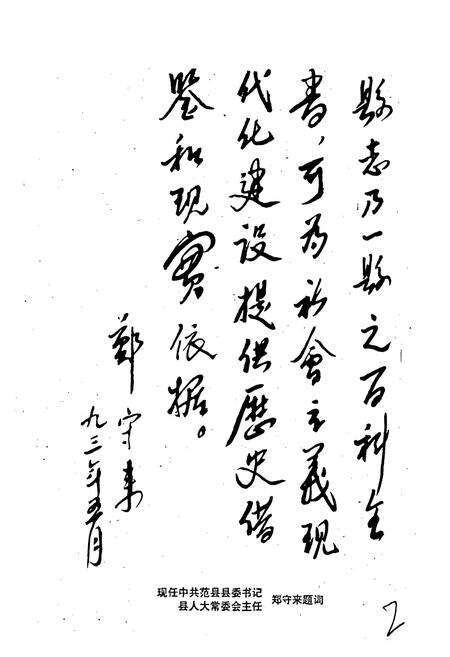 縣志乃一縣之百科全
書，可為社會主義現
代化建设提供歷史借
鉴和现實依据。
鄭守来
九三年五月
现任中共范县县委书记
县人大常委会主任
郑守来题词
2